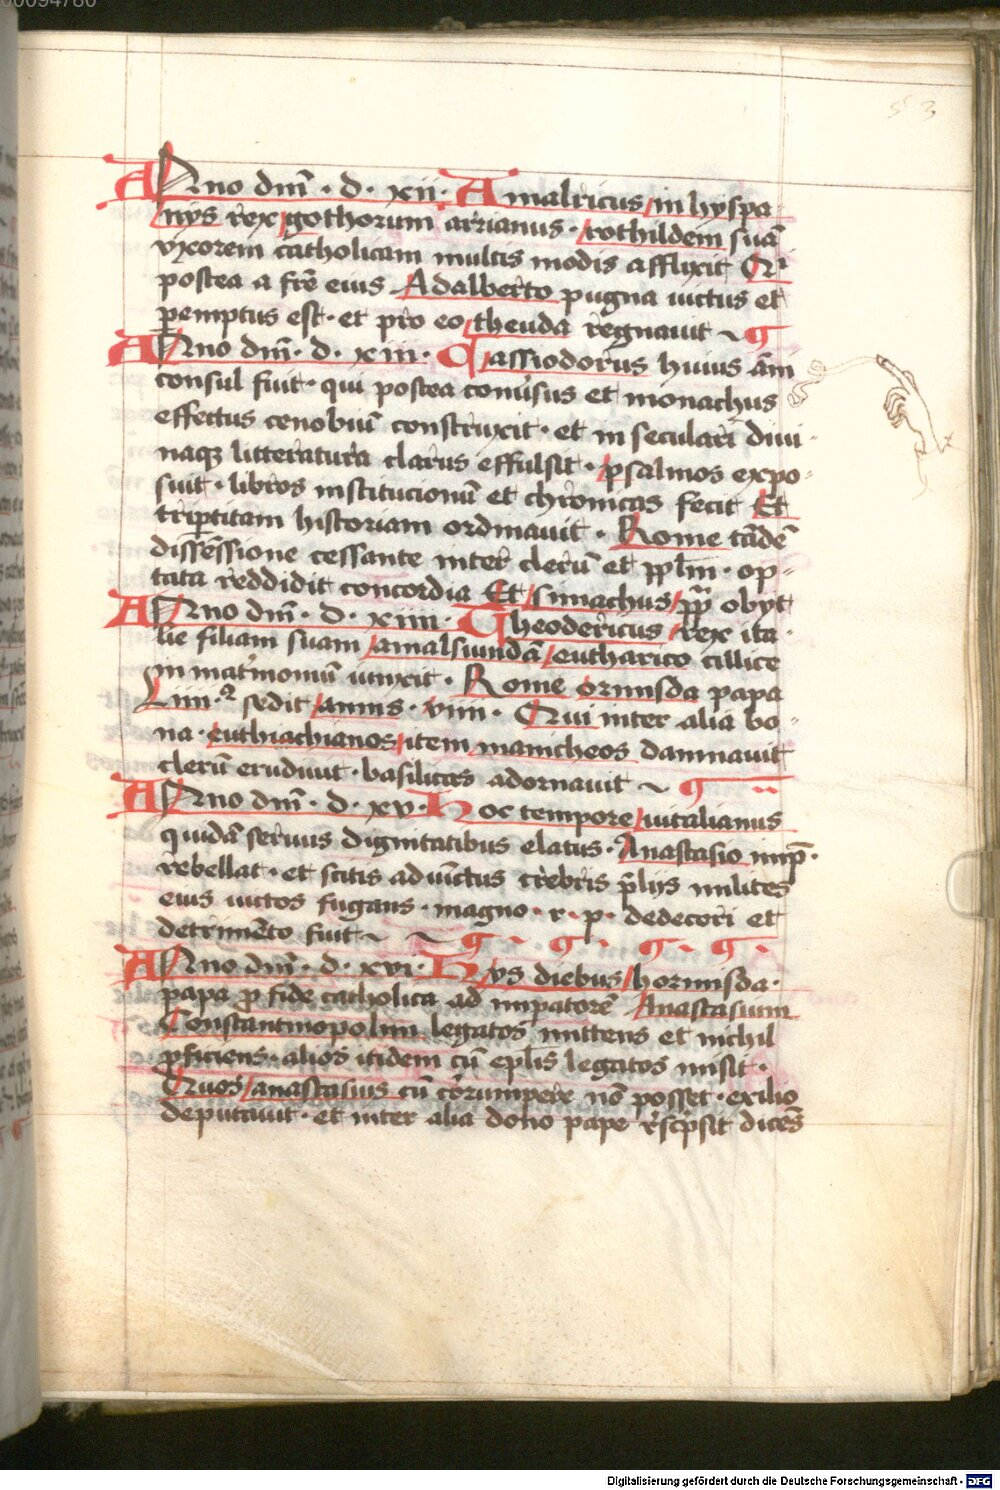 00094780
53
Anno dm̄ · d · xii · Amalricus in hyspa
nÿs rex gothorum arrianus · rothildem suā
vxorem catholicam multis modis afflixit Qⁱ
postea a fr̄e eius Adalberto pugna uictus et
peremptus est · et pro eo theuda regnauit ~ ¶
Anno dm̄ · d · xiii · Cassiodorus huius āni
consul fuit · qui postea conu̾sus et monachus
effectus cenobiū construxit · et in seculari diui-
naqꝫ litteratura clarus effulsit · psalmos expo-
suit · libros institucionū et chronicas fecit Et
trip̄titam historiam ordinauit · Rome tādē
dissēssione cessante inter clerū et pplm̄ · op-
tata reddidit concordia Et simachus pp̄ obyt
Anno dm̄ · d · xiiii · Theodericus rex ita-
lie filiam suam amalsiundā eutharico cillice
in mat̾monıū iunxit · Rome ormisda papa
Liiii · sedit annis · viiii · Qui inter alia bo-
na · euthiachianos item manicheos damnauit
clerū erudiuit · basilicas adornauit ~ ¶
Anno dm̄ · d · xv · Hoc tempore uitalianus
quidā seruus dignitatibus elatus · Anastasio imp̄ ·
rebellat · et scitis aduinctus crebris p̄lijs milites
eius uictos fugans · magno · r · p · dedecori et
detrimēto fuit ~ ~ ¶ · ¶ · ¶ · ¶ ·
Anno dm̄ · d · xvi · Hys diebus hormisda ·
papa ꝓ fide catholica ad impatorē Anastasium
Constantinopolim legatos mittens et nichil
ꝓficiens · alios itidem cū epl̄is legatos misit ·
Quos anastasius cū corumpere nō posset · exilio
deputauit · et inter alia dolio pape rescͥpsit dicēs
Digitalisierung gefördert durch die Deutsche Forschungsgemeinschaft - DFG